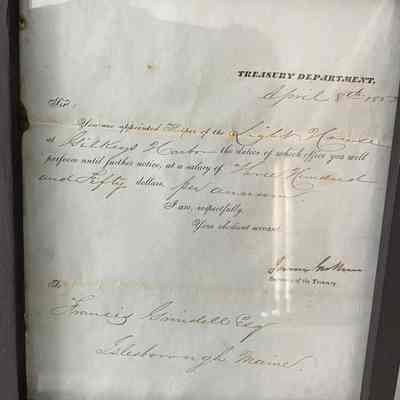 TREASURY DEPARTMENT,
April 8th 1853
Sir:
You are appointed Keeper of the Light House
at Gilkeys Harbor the duties of which office you will
perform until further notice, at a salary of Three Hundred
and Fifty dollars, per annum.
I am, respectfully,
Your obedient servant,
James Guthrie
Secretary of the Treasury
To
Francis Grindell Esq
Islesborough Maine.